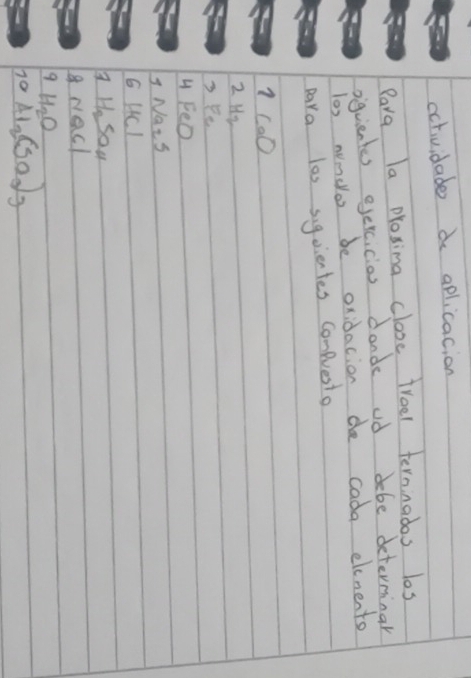 actividades de aplicacion
Para la proxima clase traer terminados los
siguientes ejercicios donde ud debe determinar
los numeros de oxidacion de cada elemento
para los siguientes compuesto
1 CaO
2 H₂
3 Fe
4 FeO
5 Na₂S
6 HCl
7 H₂SO₄
8 NaCl
9 H₂O
10 Al₂(SO₄)₃